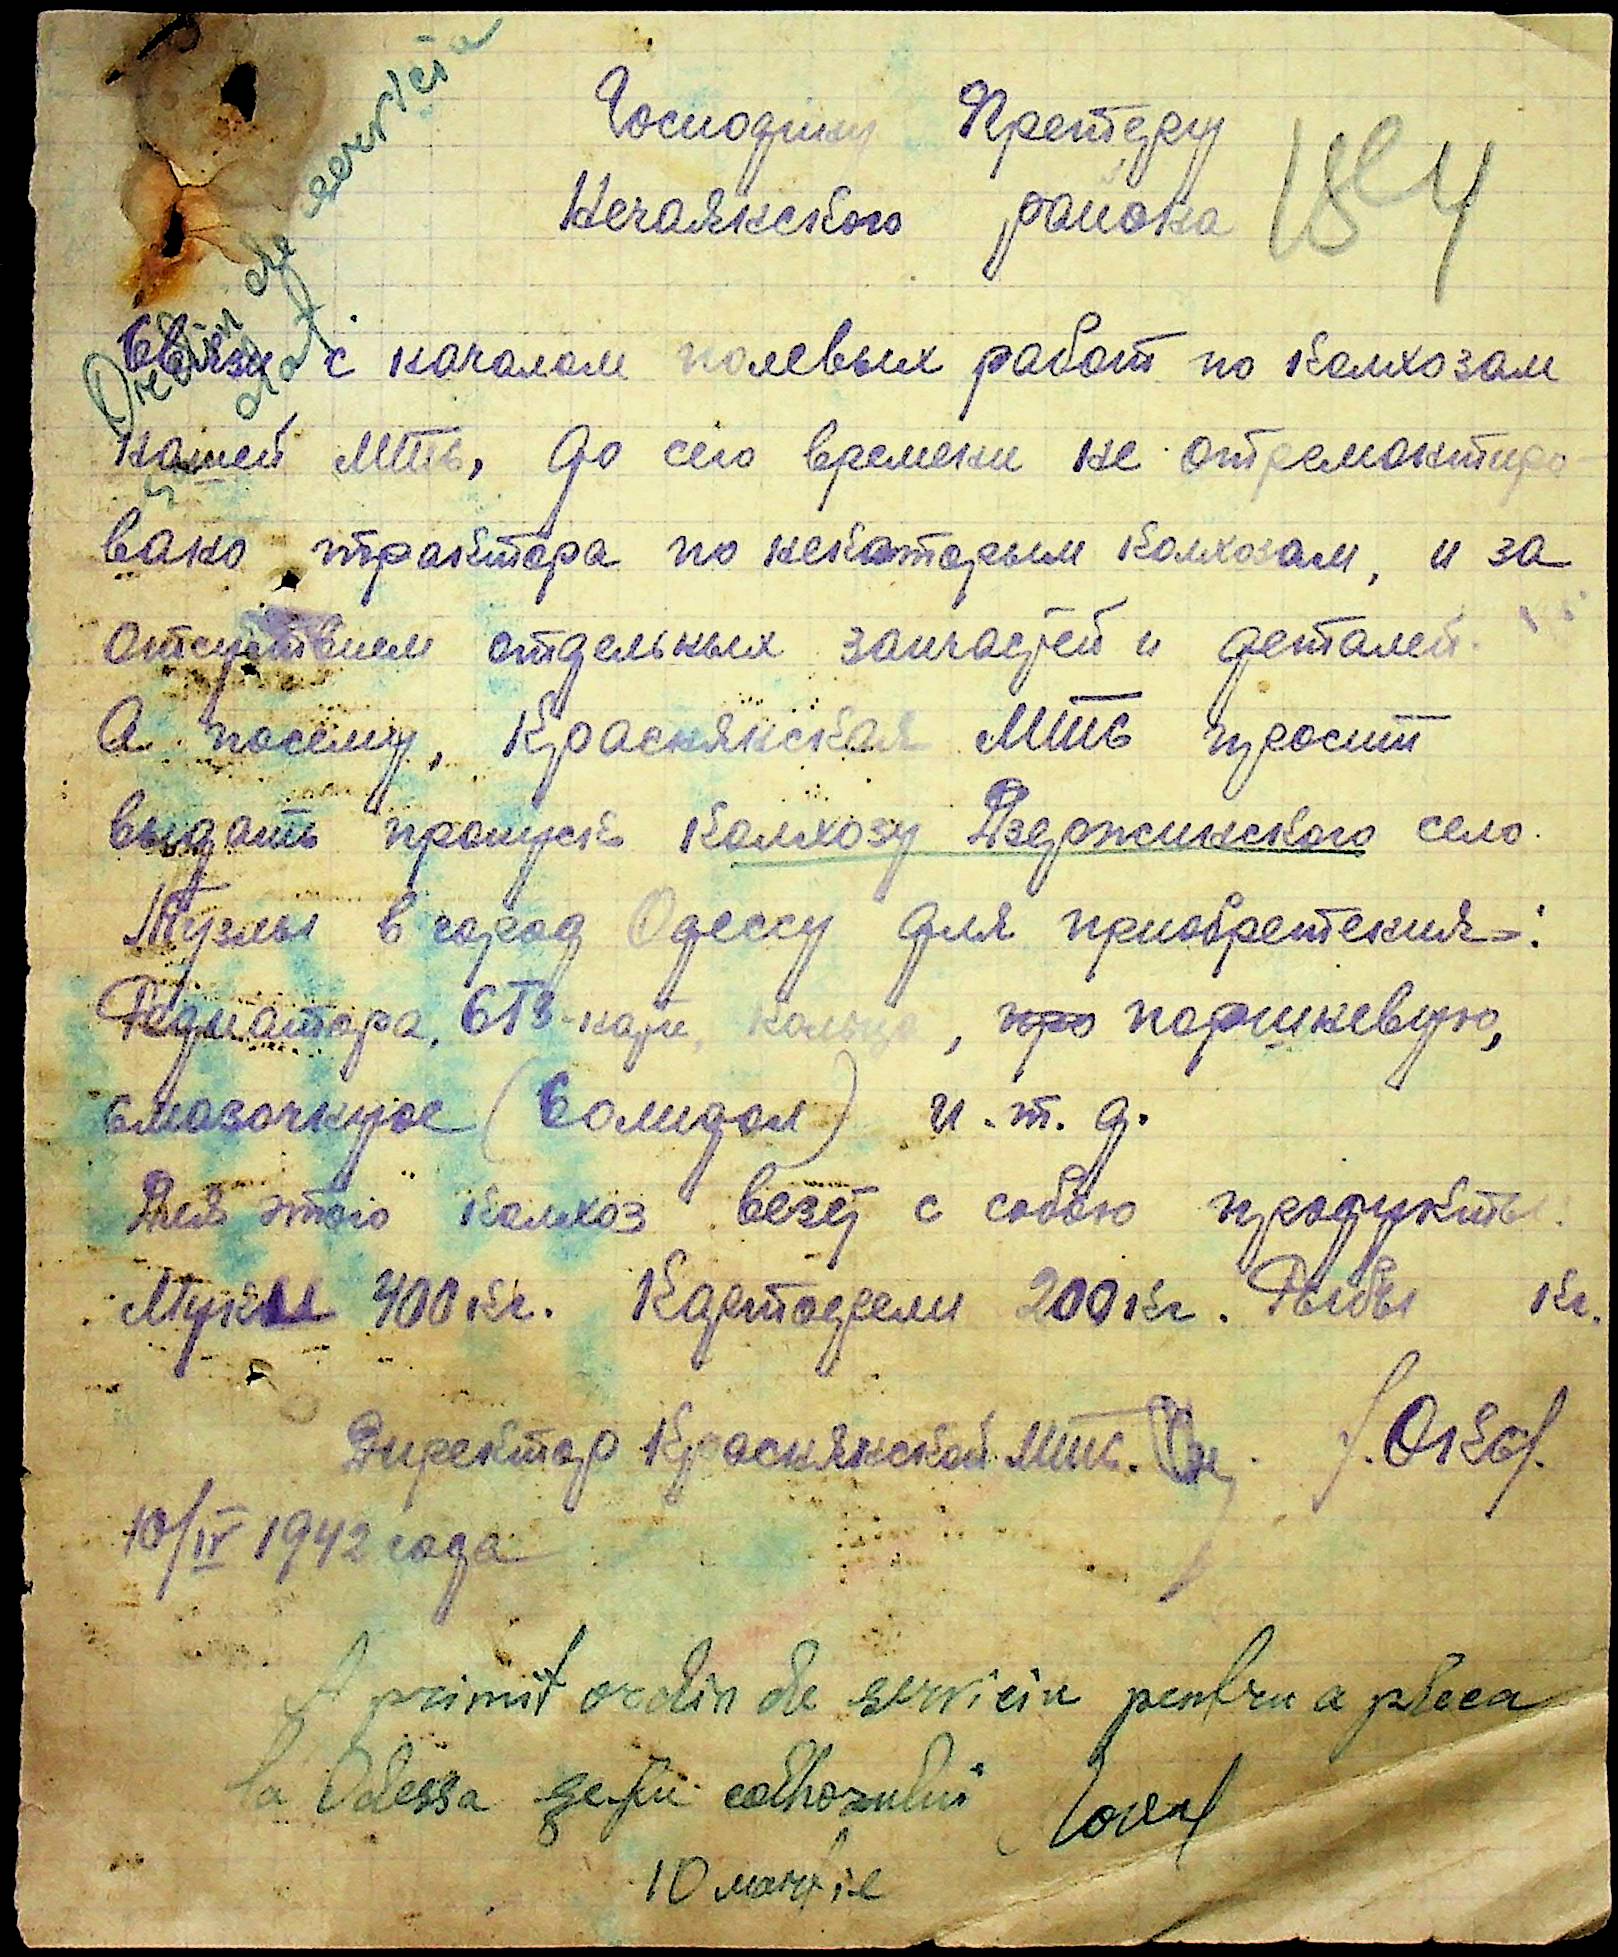 Ordin de serviciu
dat
Господину Претору
184
Нечаянского района
Связи с началом полевых работ по колхозам
нашей МТС, до сего времени не отремонтиро-
вано трактора по некоторым колхозам, и за
отсутствием отдельных запчастей и деталей.
А посему, Краснянская МТС просит
выдать пропуск колхозу Дзержинского село
Тузлы в город Одессу для приобретения:
Радиатора, СТЗ-нати, кольца, поршневую,
смазочную (Солидол) и. т. д.
Для этого колхоз везет с собою продукты.
Муки 400 кг. Картофели 200 кг. Рыбы кг.
Директор Краснянской МТС.
10/IV 1942 года
A primit ordin de serviciu pentru a pleca
la Odessa șefu colhozului
10 martie